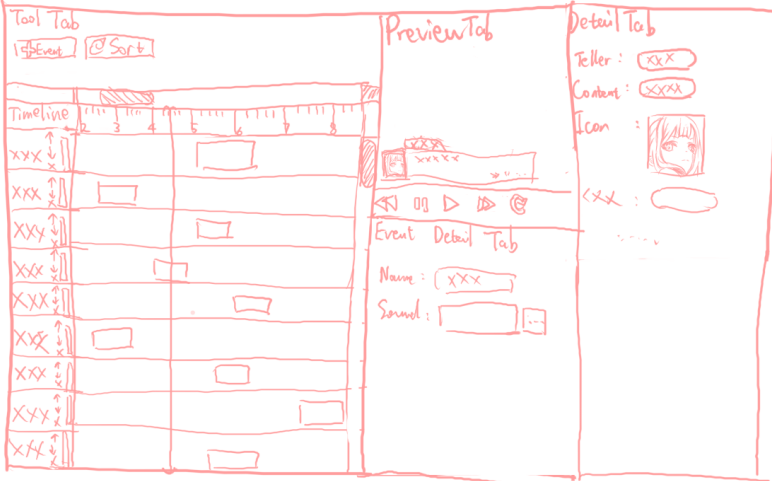 Tool Tab
Event
Sort
Timeline
2 3 4 5 6 7 8
xxx
xxx
xxy
xxx
xxx
xxx
xxx
xxy
xxx
Preview Tab
xxx
xxxxx
Event Detail Tab
Name: xxx
Sound:
...
Detail Tab
Teller: xxx
Content: xxxx
Icon :
<xx :